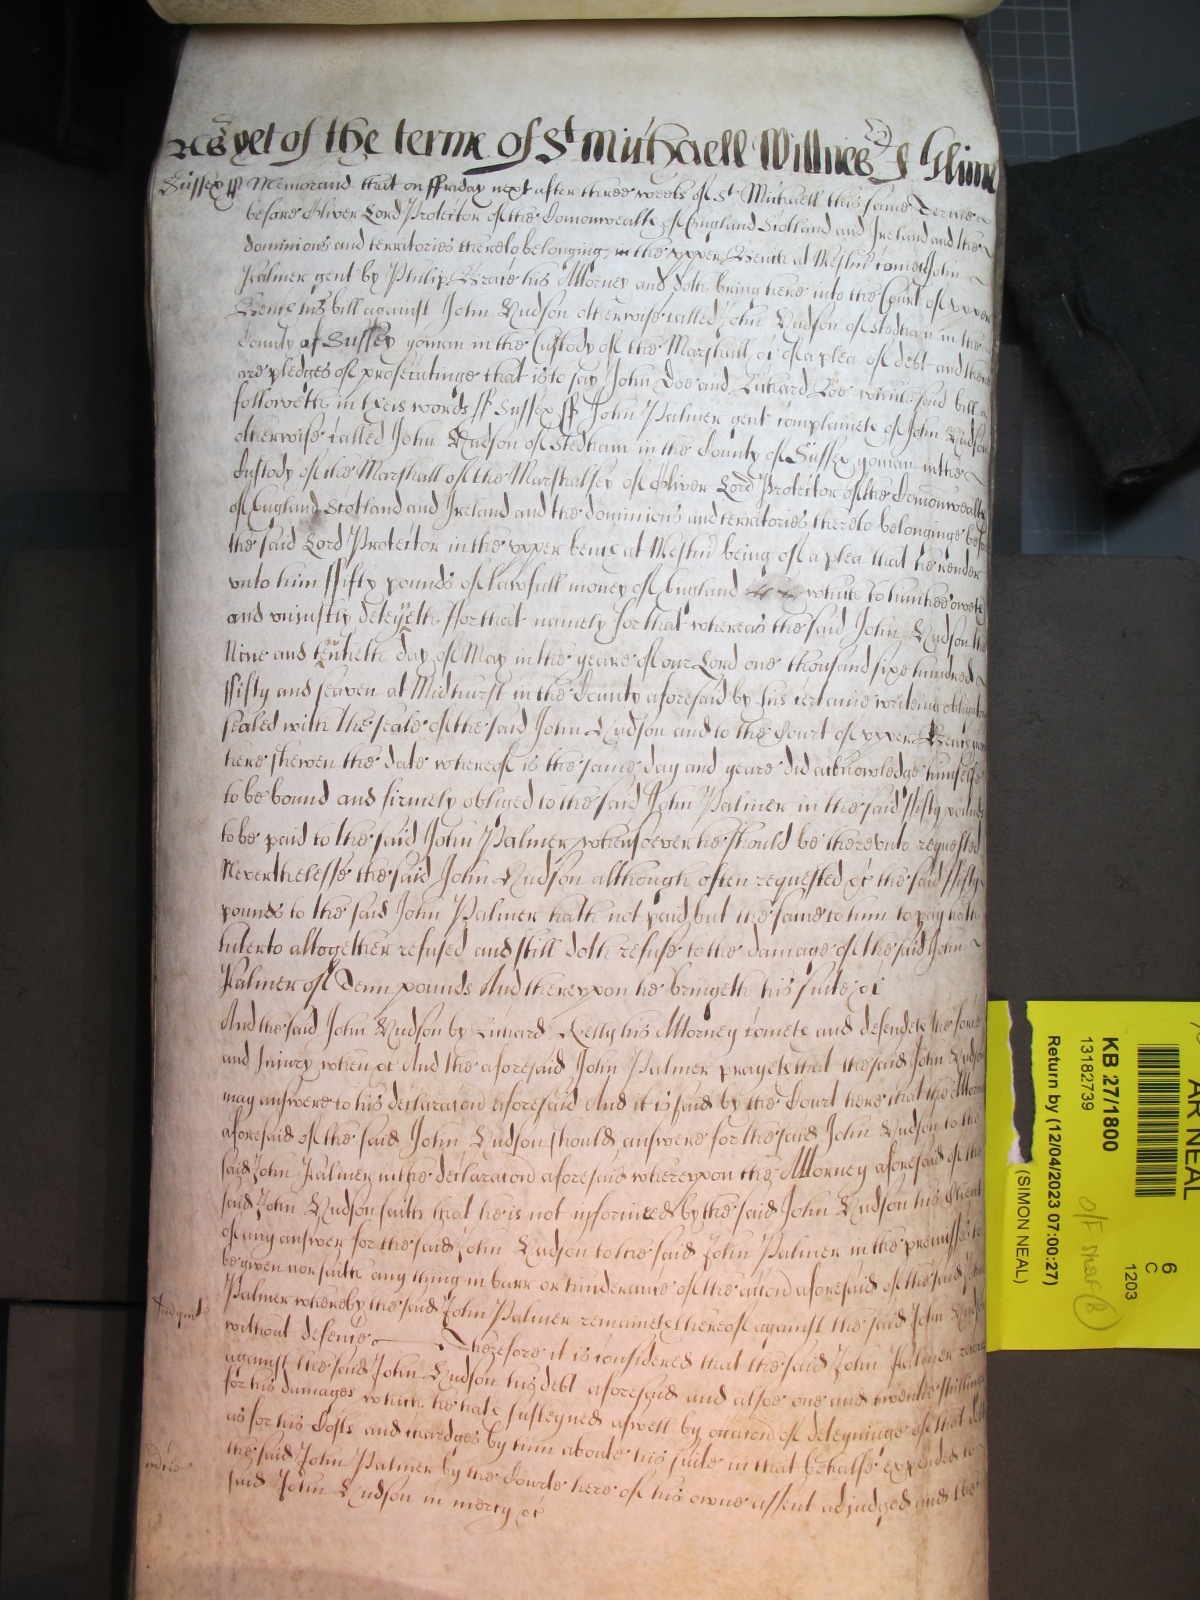 As yet of the terme of St Michaell Willnes
Sussex ss Memorand that on ffriday next after three weeks of St Michaell this same Terme
before Oliver Lord Protector of the Comonwealth of England Scotland and Ireland and the
dominions and territories thereto belonging in the upper Bench at Westm cometh John
Palmer gent by Phillip his Attorney and doth bring here into the Court of upper
Bench his bill against John Hudson otherwise called John Hudson of Stedham in the
County of Sussex yoman in the Custody of the Marshall &c of a plea of debt and there
are pledges of prosecutinge that is to say John Doe and Richard Roe which said bill
followeth in theis words ss Sussex ss John Palmer gent complaineth of John Hudson
otherwise called John Hudson of Stedham in the County of Sussex yoman in the
Custody of the Marshall of the Marshalsey of Oliver Lord Protector of the Comonwealth
of England Scotland and Ireland and the dominions and territories thereto belonginge before
the said Lord Protector in the upper bench at Westm being of a plea that he render
unto him ffifty pounds of lawfull money of England which to him hee oweth
and uniustly deteyneth ffor that namely for that whereas the said John Hudson the
Nine and twentieth day of May in the yeare of our Lord one thousand sixe hundred
ffifty and seaven at Midhurst in the County aforesaid by his certaine writeing obligatory
sealed with the seale of the said John Hudson and to the Court of upper Bench now
here shewen the date whereof is the same day and yeare did acknowledge himselfe
to be bound and firmely obliged to the said John Palmer in the said ffifty pounds
to be paid to the said John Palmer whensoever he should be thereunto requested
Neverthelesse the said John Hudson although often requested &c the said ffifty
pounds to the said John Palmer hath not paid but the same to him to pay hath
hitherto altogether refused and still doth refuse to the damage of the said John
Palmer of Tenn pounds And thereupon he bringeth his suite &c
And the said John Hudson by Richard Kelly his Attorney cometh and defendeth the force
and Injury when &c And the aforesaid John Palmer prayeth that the said John Hudson
may answere to his declaracon aforesaid And it is said by the Court here that the Attorney
aforesaid of the said John Hudson should answere for the said John Hudson to the
said John Palmer in the declaracon aforesaid whereupon the Attorney aforesaid of the
said John Hudson saith that he is not informed by the said John Hudson his Client
of any answer for the said John Hudson to the said John Palmer in the premisses to
be given nor saith any thing in barr or hinderance of the accon aforesaid of the said John
Palmer whereby the said John Palmer remaineth thereof against the said John Hudson
Judgmt without defence Therefore it is considered that the said John Palmer recover
against the said John Hudson his debt aforesaid and alsoe one and twentie shillings
for his damages which he hath susteyned aswell by occacon of deteyninge of that debt
as for his Costs and chardges by him aboute his suite in that behalfe expended to
the said John Palmer by the Courte here of his owne assent adjudged and the
said John Hudson in mercy &c
AR NEAL
6
C
1203
KB 27/1800
13182739
Return by (12/04/2023 07:00:27)
(SIMON NEAL)